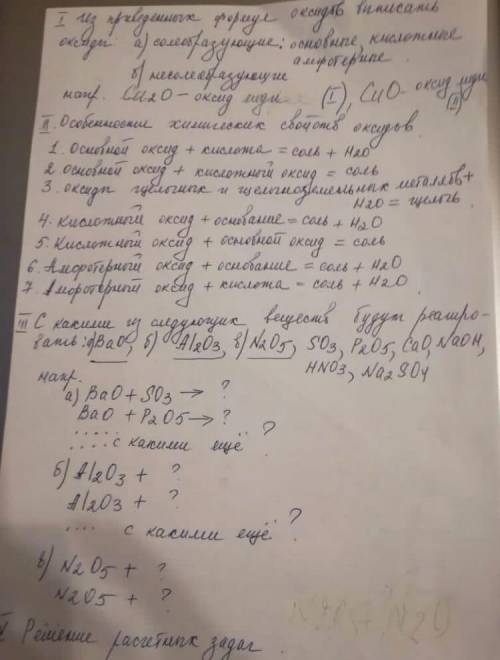 I Из приведенных формул оксидов выписать
оксиды а) солеобразующие: основные, кислотные
амфотерные.
б) несолеобразующие
напр. Cu2O – оксид меди (I), CuO – оксид меди (II)
II. Особенности химических свойств оксидов.
1. Основной оксид + кислота = соль + H2O
2 основной оксид + кислотный оксид = соль
3. оксиды щелочных и щелочноземельных металлов +
H2O = щелочь.
4. Кислотный оксид + основание = соль + H2O
5. Кислотный оксид + основной оксид = соль
6. Амфотерный оксид + основание = соль + H2O
7. Амфотерный оксид + кислота = соль + H2O.
III С какими из следующих веществ будут реагиро-
вать: а) BaO, б) Al2O3, в) N2O5, SO3, P2O5, CaO, NaOH,
HNO3, Na2SO4
напр.
а) BaO + SO3 → ?
BaO + P2O5 → ?
..... с какими ещё ?
б) Al2O3 + ?
Al2O3 + ?
.... с какими ещё ?
в) N2O5 + ?
N2O5 + ?
Решение расчетных задач.